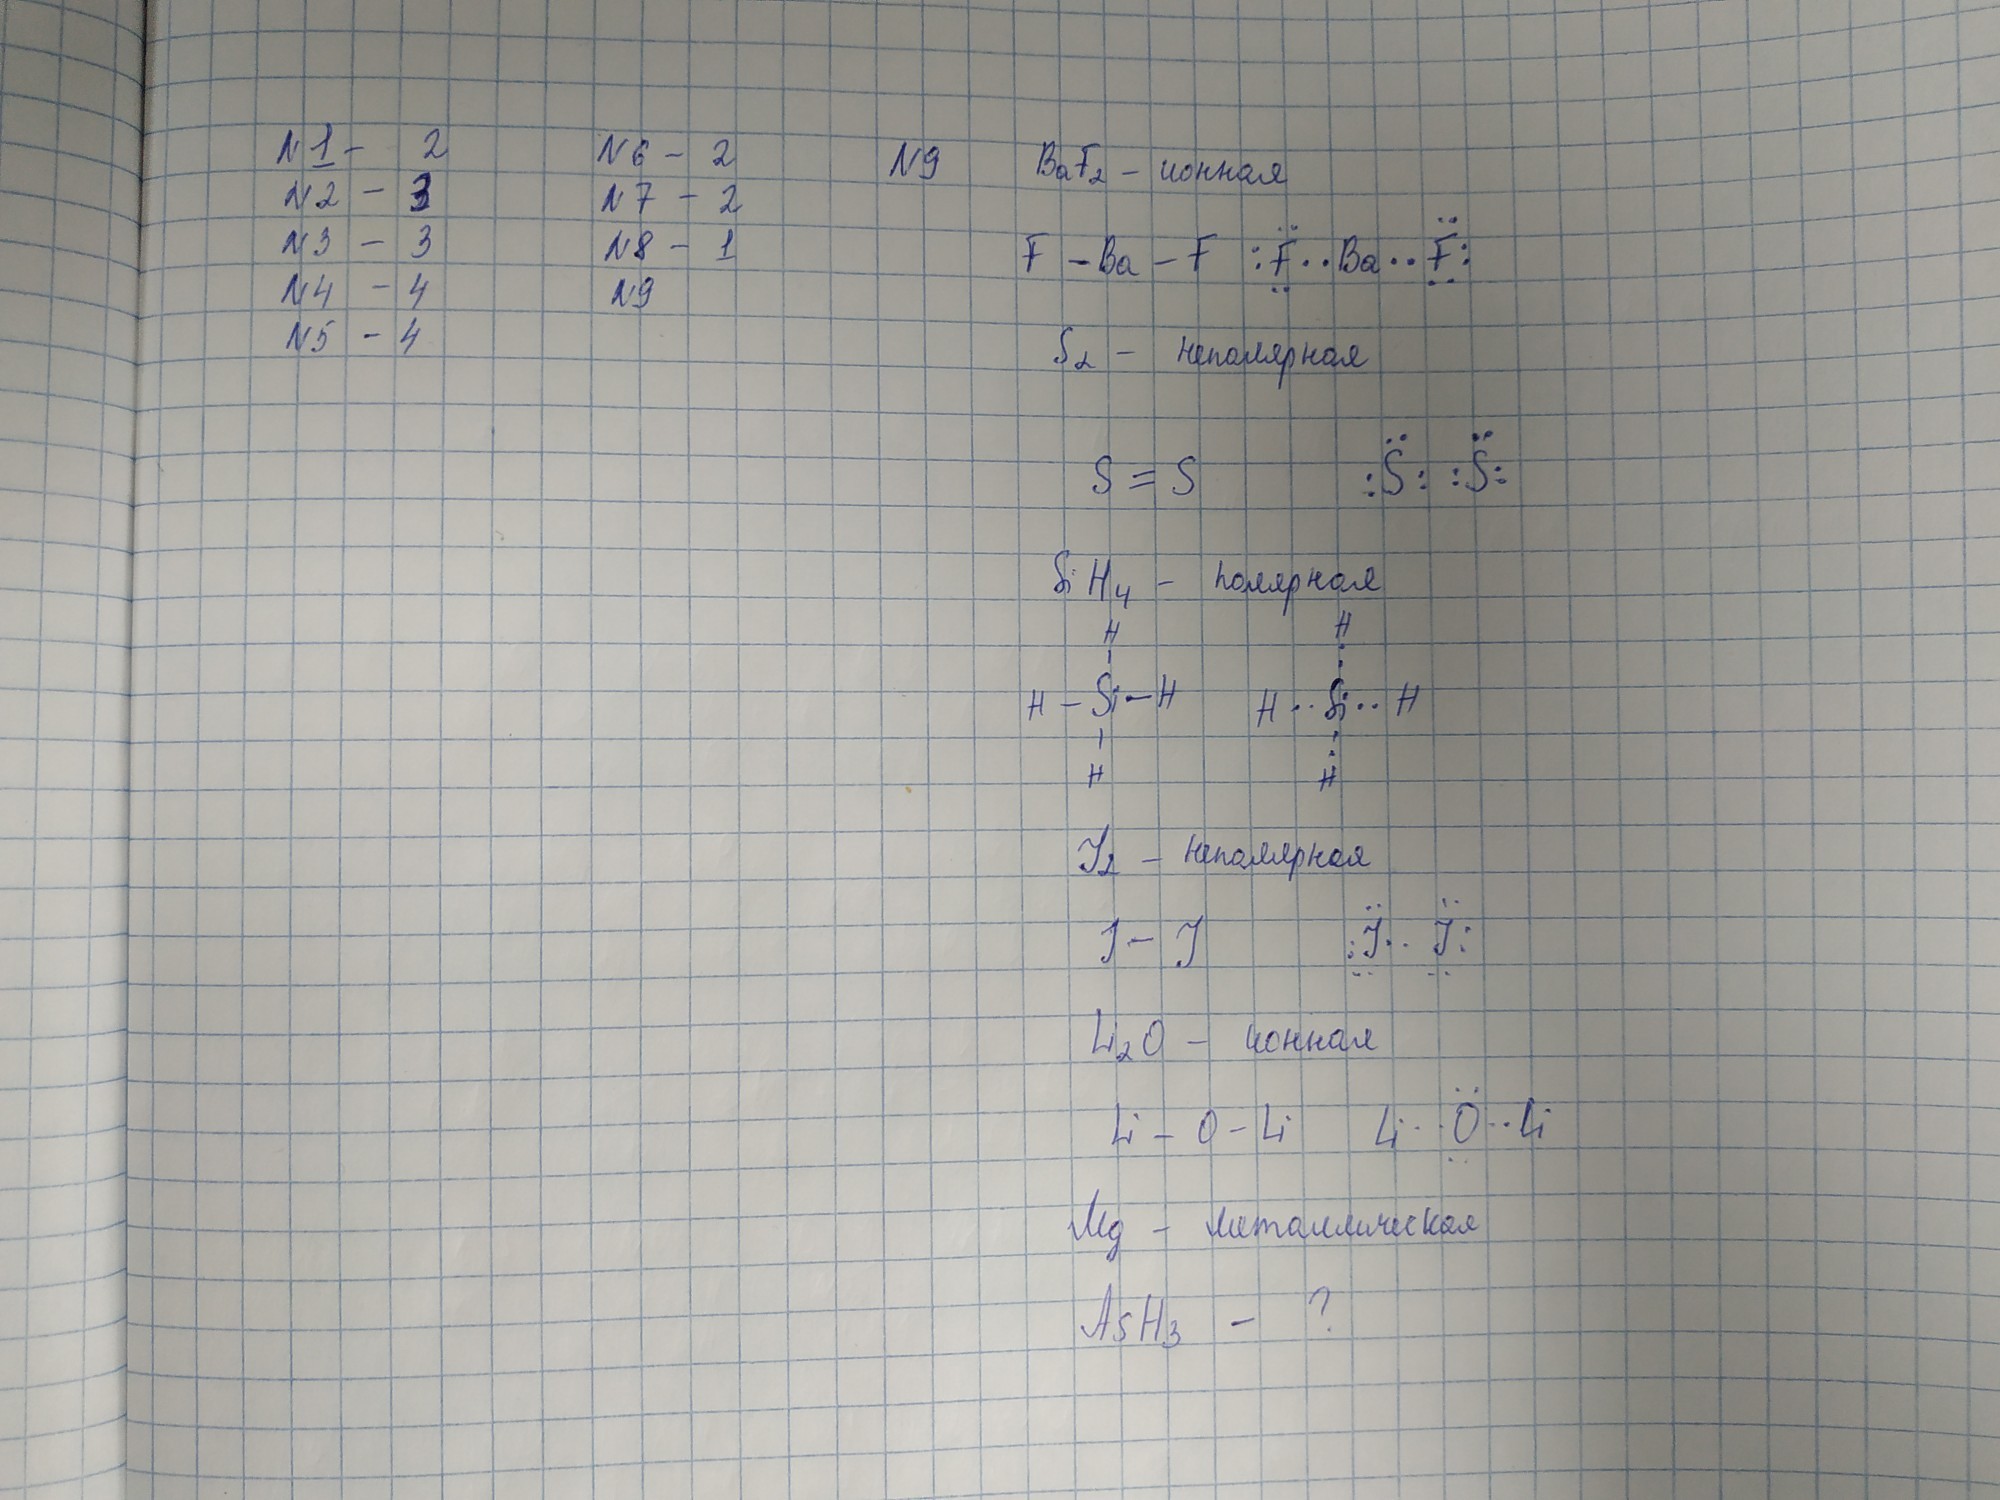 N1 - 2
N2 - 3
N3 - 3
N4 - 4
N5 - 4
N6 - 2
N7 - 2
N8 - 1
N9
N9 BaF₂ - ионная
F - Ba - F :F̤̈··Ba··F̤̈:
S₂ - неполярная
S = S :S̈: :S̈:
SiH₄ - полярная
H H
H - Si - H H··Si··H
H H
J₂ - неполярная
J - J :J̤̈·· J̤̈:
Li₂O - ионная
Li - O - Li Li··Ö̤··Li
Mg - металлическая
AsH₃ - ?